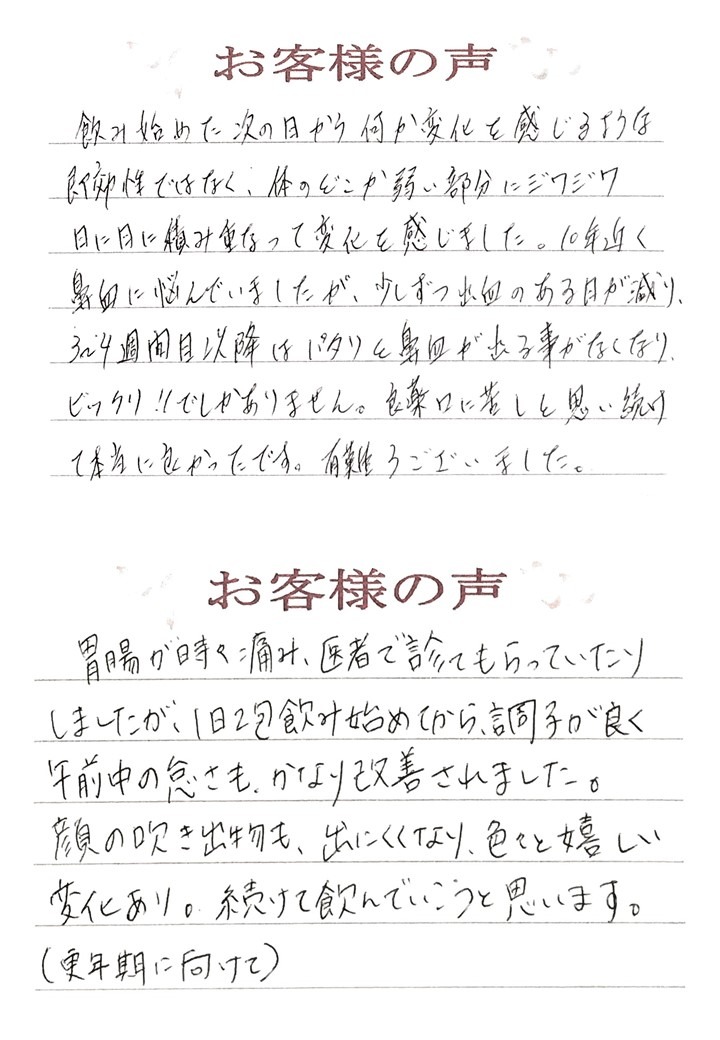 お客様の声
飲み始めた次の日から何か変化を感じるような
即効性ではなく、体のどこか弱い部分にジワジワ
日に日に積み重なって変化を感じました。10年近く
鼻血に悩んでいましたが、少しずつ出血のある日が減り、
3~4週間目以降はパタリと鼻血が出る事がなくなり、
ビックリ!!でしかありません。良薬口に苦しと思い続け
て本当に良かったです。有難うございました。
お客様の声
胃腸が時々痛み、医者で診てもらっていたり
しましたが、1日2包飲み始めてから、調子が良く
午前中の怠さも、かなり改善されました。
顔の吹き出物も、出にくくなり、色々と嬉しい
変化あり。続けて飲んでいこうと思います。
(更年期に向けて)